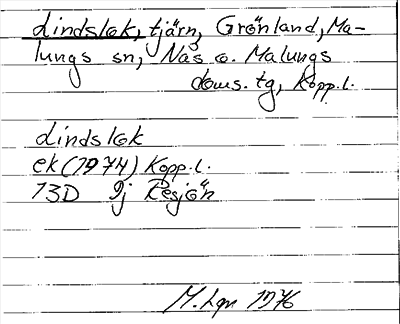 Lindslok, tjärn, Grönland, Ma-
lungs sn, Nås o. Malungs
doms. tg, Kopp. l.
Lindslok
ek (1974) Kopp. l.
13D 9j Resjön
M. Lgn 1976